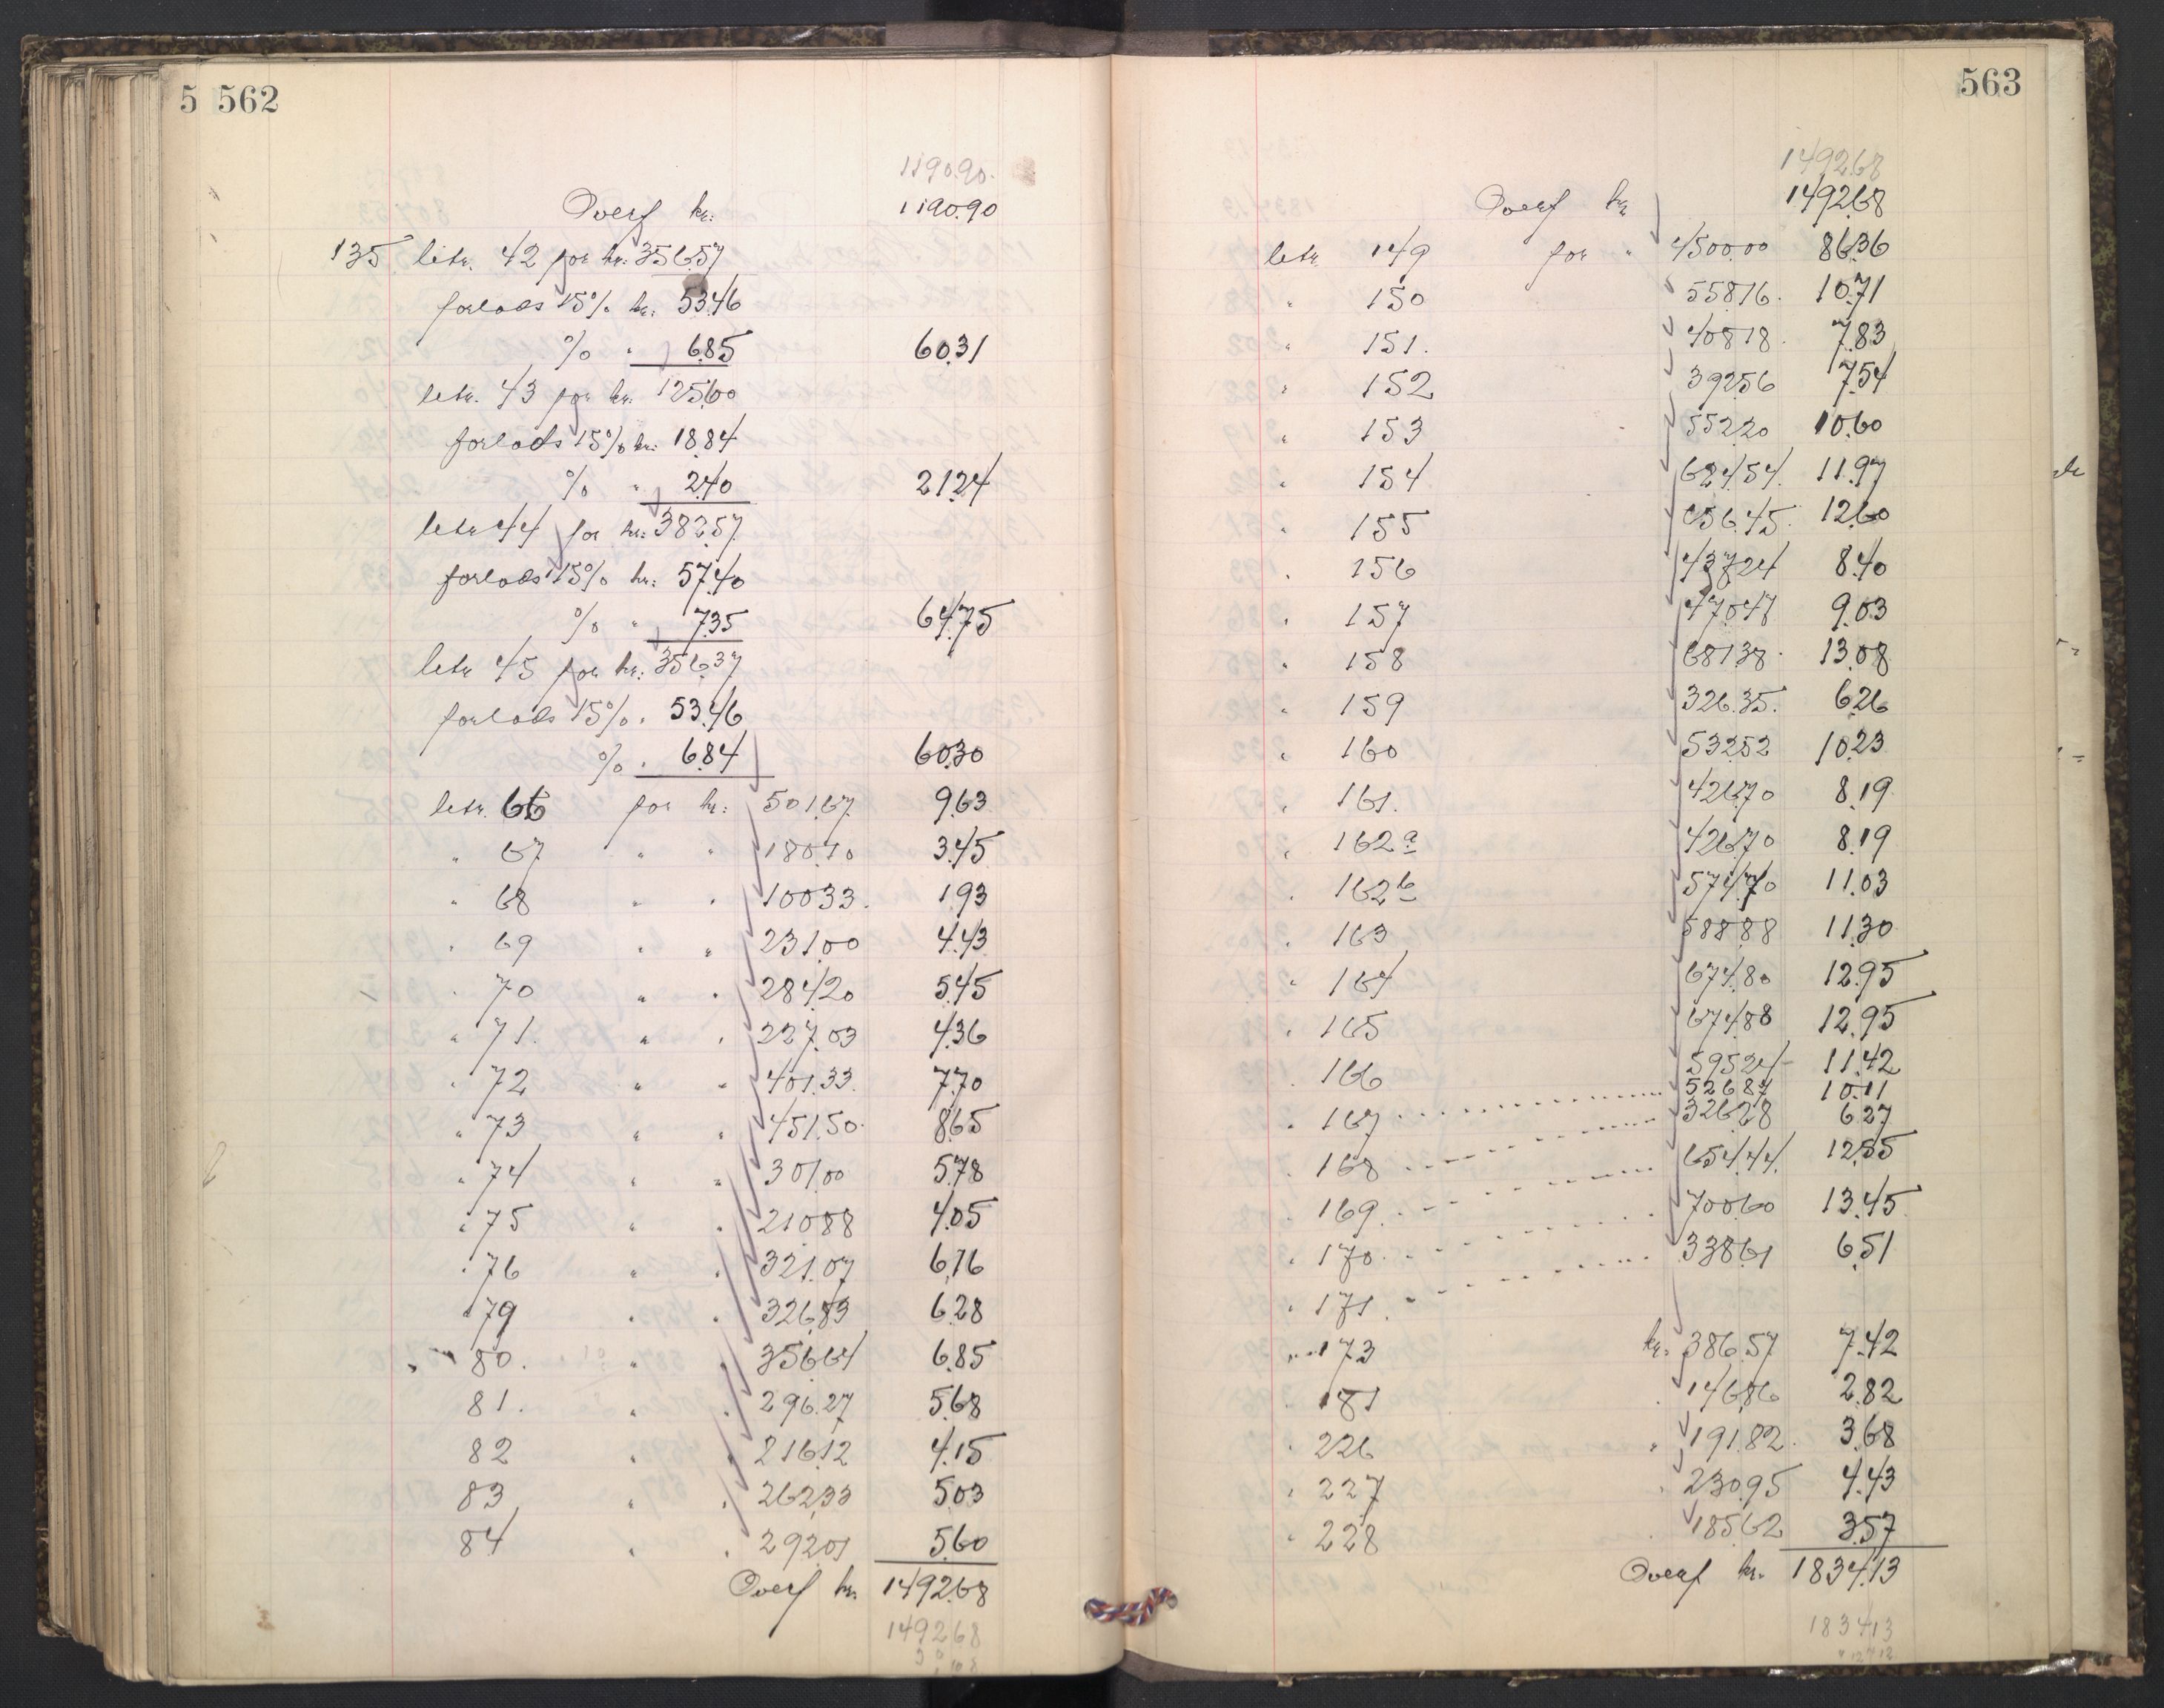 5 562
1190.90.
Overf kr: 1190.90
135 litr. 42 for kr. 356.57
forlods 15% kr. 53.46
% " 6.85 60.31
litr. 43 for kr. 125.60
forlods 15% kr: 18.84
% " 2.40 21.24
litr 44 for kr: 382.57
forlods 15% kr: 57.40
% " 7.35 64.75
litr 45 for kr.: 356.37
forlods 15% " 53.46
% " 6.84 60.30
litr. 66 for kr: 501.67 9.63
" 67 " " 180.10 3.45
" 68 " " 100.33. 1.93
" 69 " " 231.00 4.43
" 70 " " 284.20 5.45
" 71. " " 227.03 4.36
" 72 " " 401.33. 7.70
" 73 " " 451.50. 8.65
" 74 " " 301.00 5.78
" 75 " " 210.88 4.05
" 76 " " 321.07 6.16
" 79 " " 326.83 6.28
" 80. " " 356.64 6.85
81. " " 296.27 5.68
82 " " 216.12 4.15
83 " " 262.33 5.03
84 " " 292.01 5.60
Overf kr. 1492.68
1492.68
563
1492.68
Overf kr 1492.68
litr 149 for " 4500.00 86.36
" 150 558.16. 10.71
" 151. 408.18. 7.83
" 152 392.56 7.54
" 153 552.20 10.60
" 154 624.54. 11.97
" 155 656.45. 12.60
" 156 437.24 8.40
" 157 470.47 9.03
" 158 681.38. 13.08
" 159 326.35. 6.26
" 160 532.52 10.23
" 161. 426.70 8.19
" 162a 426.70 8.19
" 162b 574.70 11.03
" 163 588.88 11.30
" 164 674.80 12.95
" 165 674.88 12.95
" 166 595.24 11.42
" 167 526.87 10.11
" 168 326.28 6.27
" 169 654.44. 12.55
" 170 700.60 13.45
" 171. 338.61 6.51
" 173 kr. 386.57 7.42
" 181 " 146.86 2.82
" 226 " 191.82. 3.68
" 227 " 230.95 4.43
" 228 " 185.62 3.57
Overf kr. 1834.13
1834.13